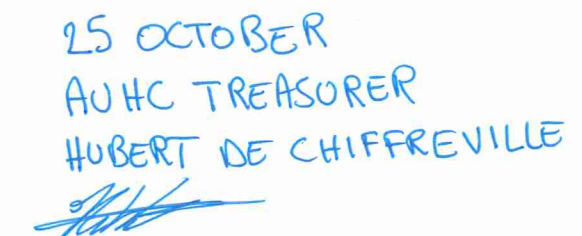 25 OCTOBER
AUHC TREASURER
HUBERT DE CHIFFREVILLE